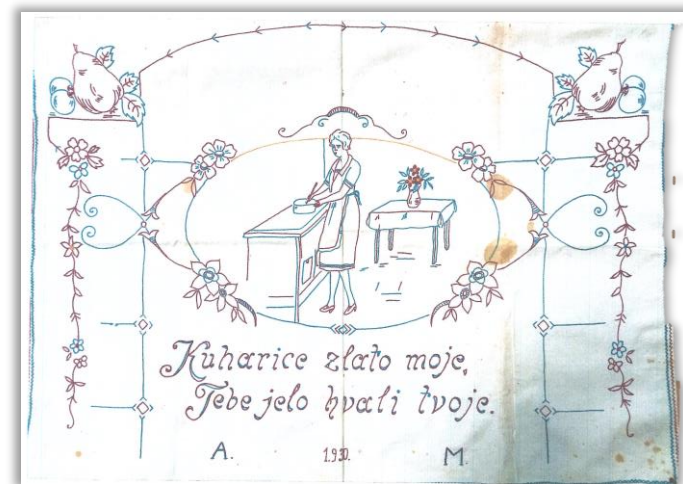 Kuharice zlato moje,
Tebe jelo hvali tvoje.
A. 1930. M.